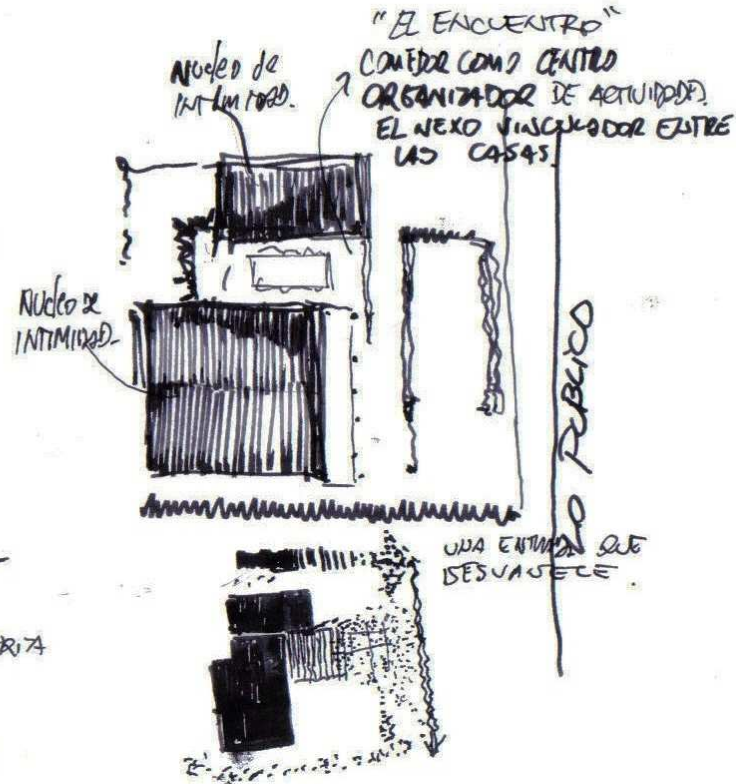 "EL ENCUENTRO"
COMEDOR COMO CENTRO
ORGANIZADOR DE ACTIVIDADES.
EL NEXO VINCULADOR ENTRE
LAS CASAS.
Nucleo de
INTIMIDAD.
Nucleo de
INTIMIDAD.
LO PUBLICO
UNA ENTRADA QUE
DESVANECE.